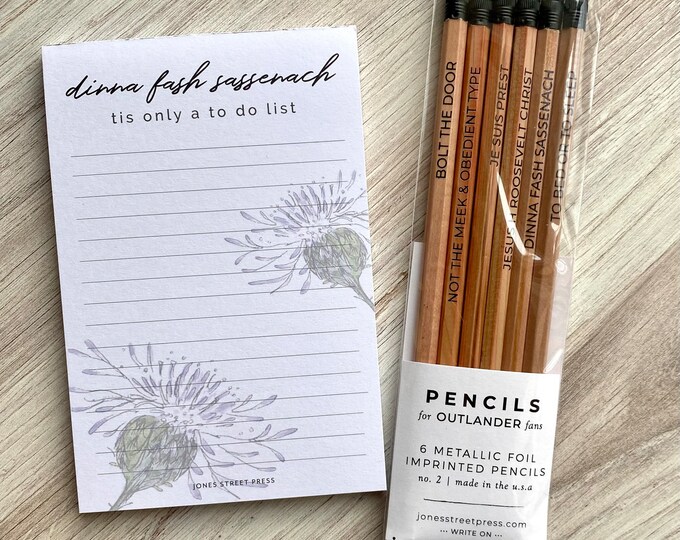 dinna fash sassenach
tis only a to do list
JONES STREET PRESS
BOLT THE DOOR
NOT THE MEEK & OBEDIENT TYPE
JE SUIS PREST
JESUS H ROOSEVELT CHRIST
DINNA FASH SASSENACH
TO BED OR TO SLEEP
PENCILS
for OUTLANDER fans
6 METALLIC FOIL
IMPRINTED PENCILS
no. 2 | made in the u.s.a
jonesstreetpress.com
... WRITE ON ...